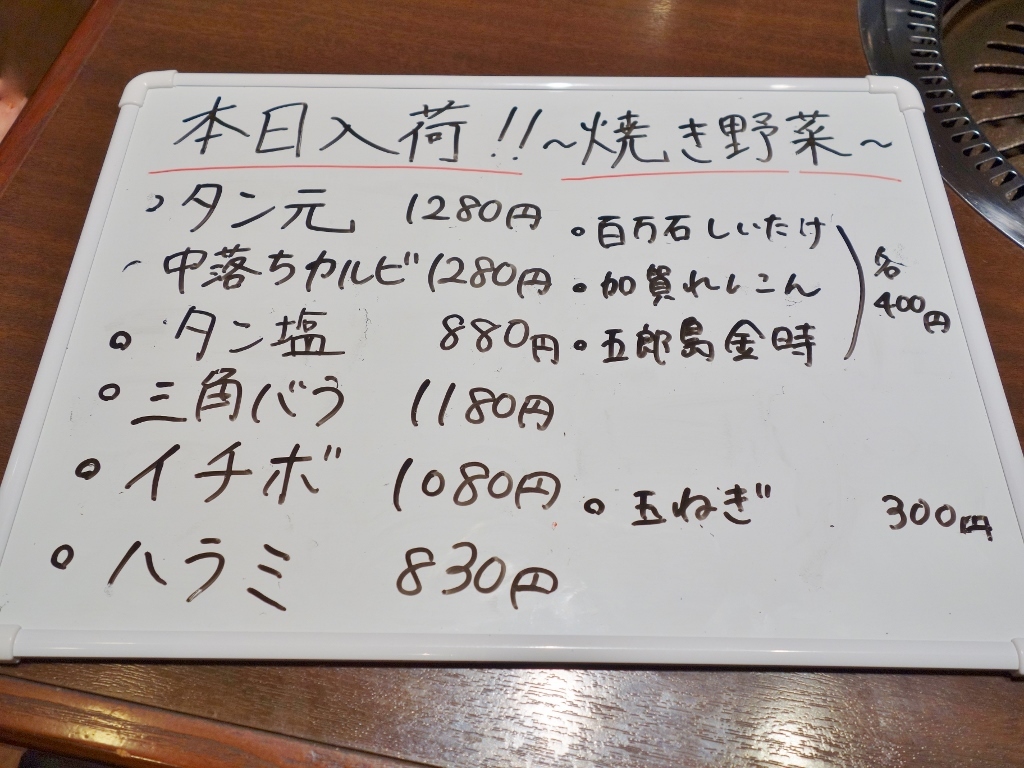 本日入荷!!
タン元 1280円
中落ちカルビ 1280円
タン塩 880円
三角バラ 1180円
イチボ 1080円
ハラミ 830円
~焼き野菜~
百万石しいたけ
加賀れんこん
五郎島金時
各
400円
玉ねぎ 300円